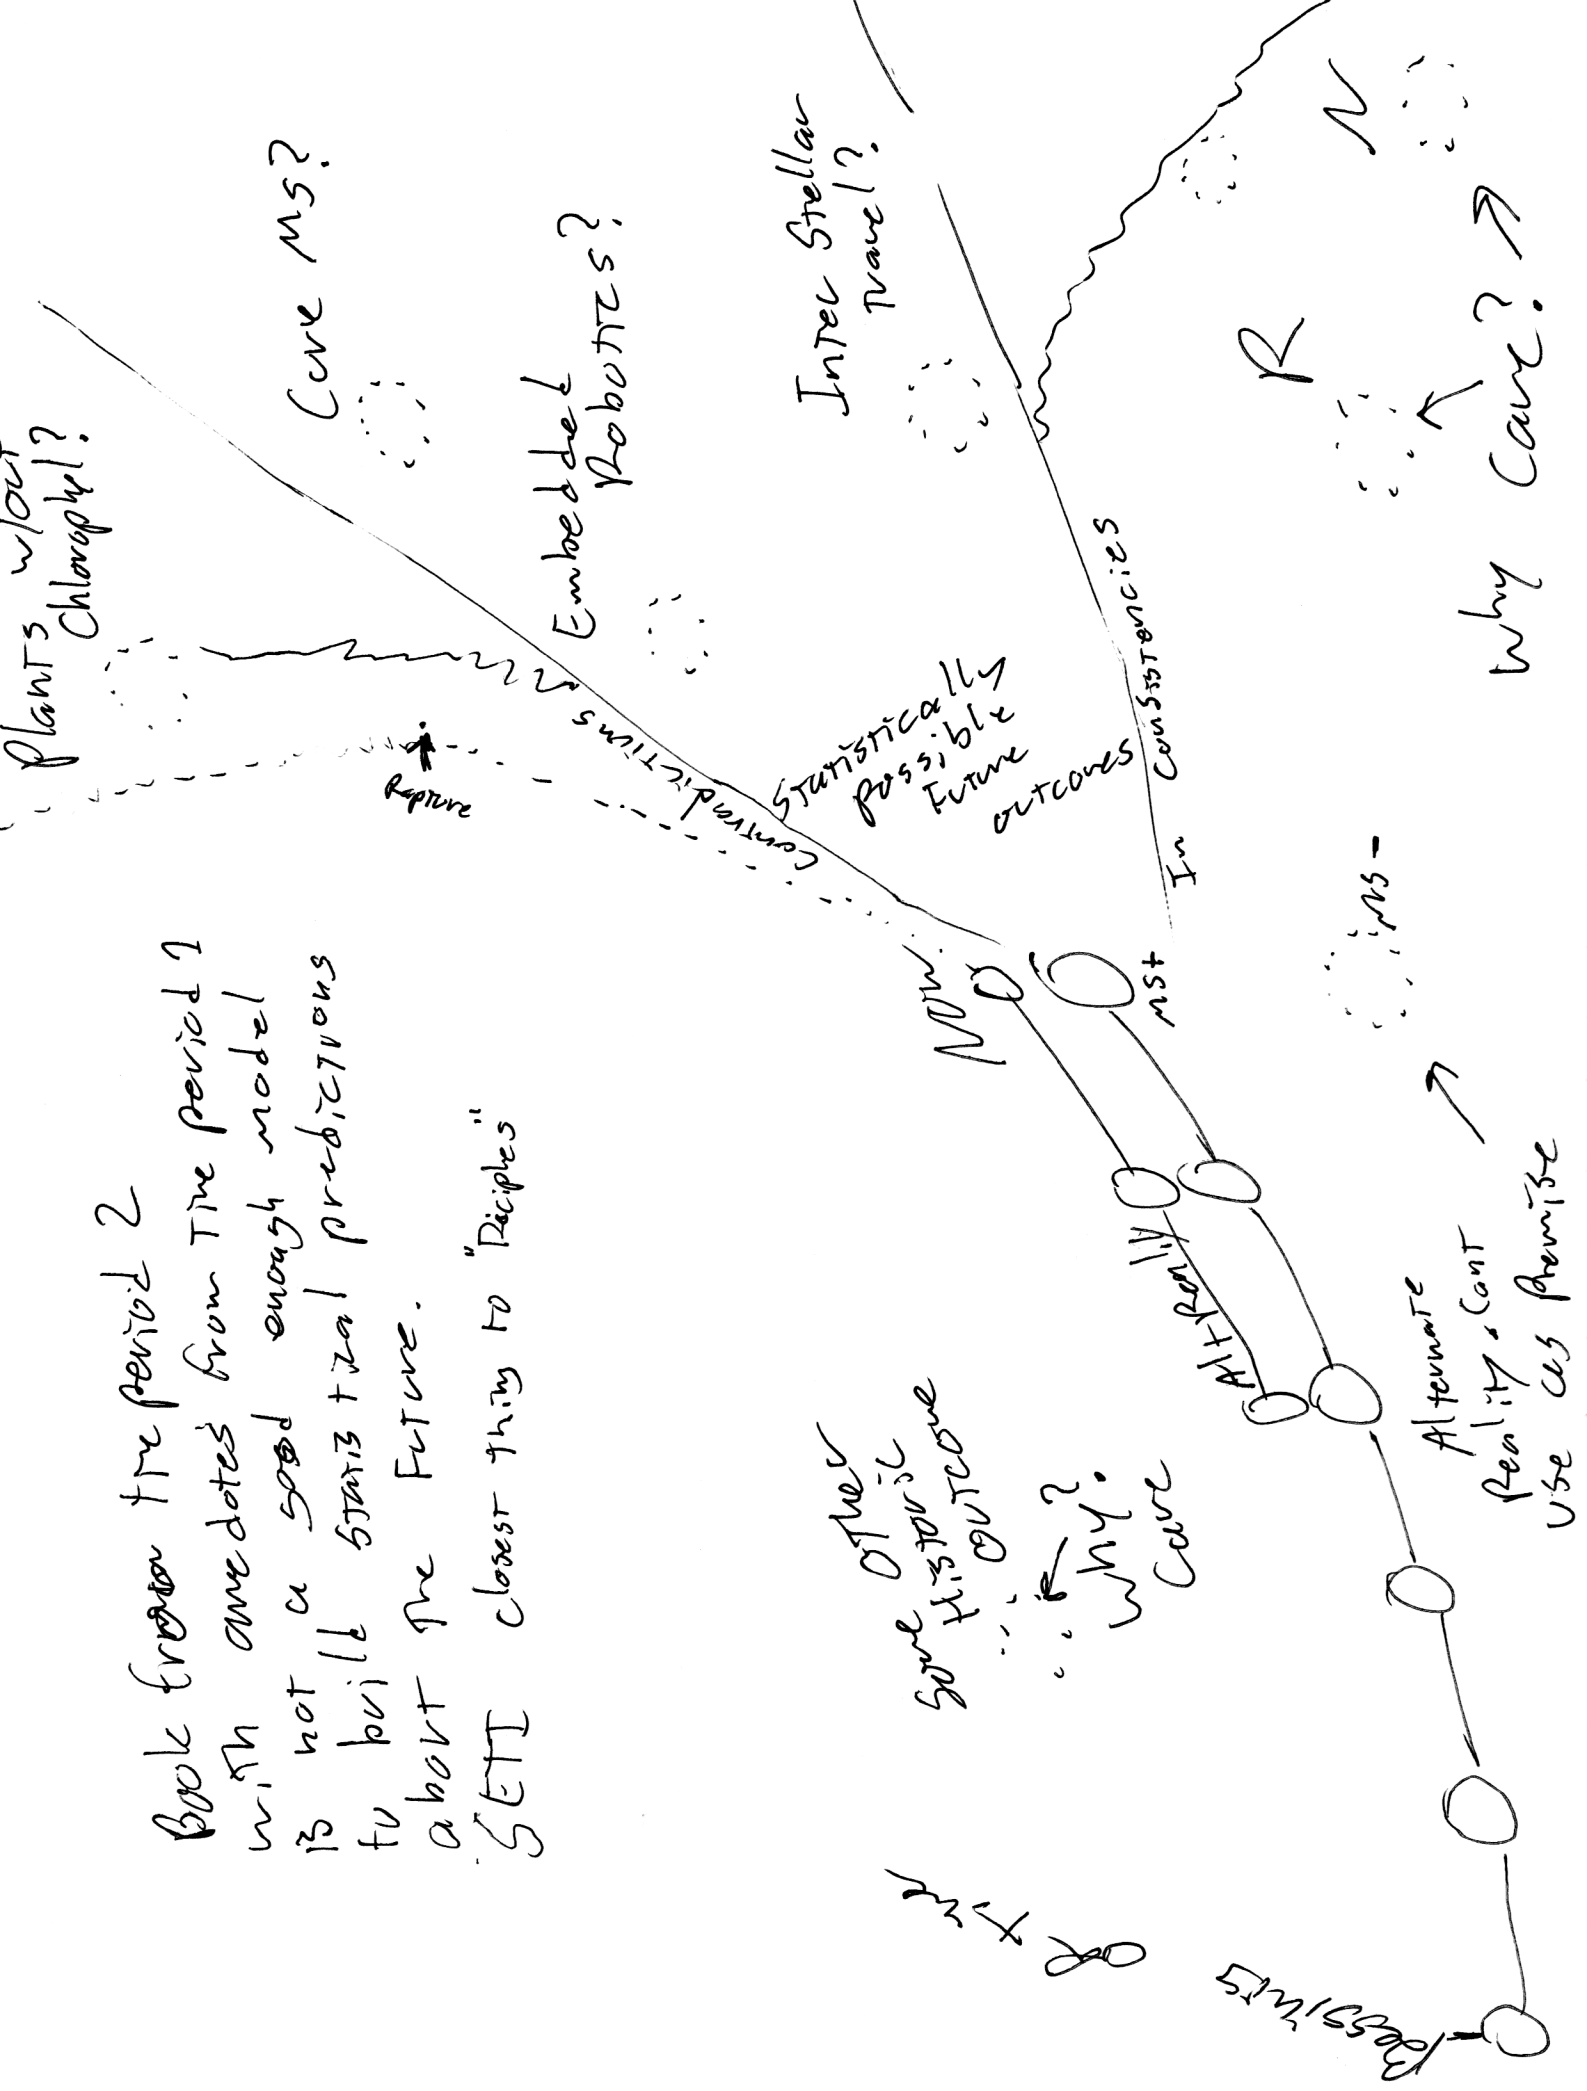 Book from time period 2
with anecdotes from Time period 1
is not a good enough model
to build statistical predictions
about The Future.
SETI closest thing to "Disciples"
Plants w/out
Chlorophyl?
Cure MS?
Embedded
Robotics?
Inter Stellar
Travel?
Rapture
Contradictions
Statistically
possible
Future
outcomes
In consistencies
Now
MS+
MS-
R
N
Why Care?
Alt Reality
Some other
Historic
outcome
Why?
Care
Alternate
Reality. Cont
use as Premise
Beginning
of time